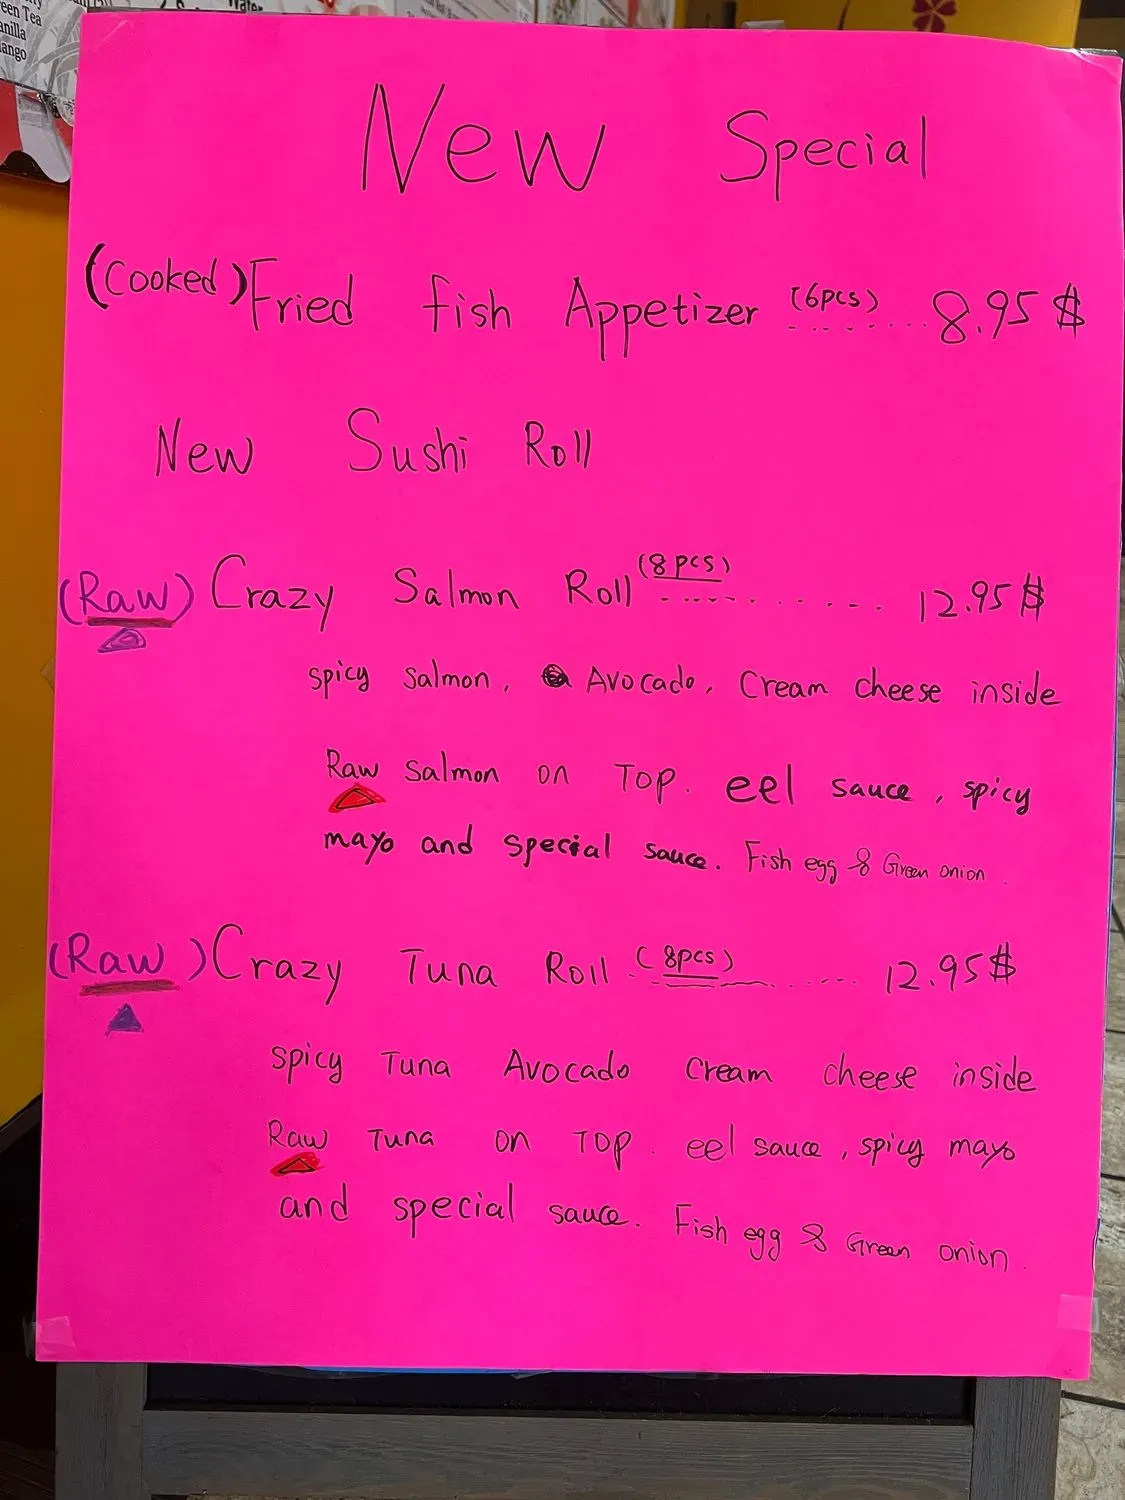 een Tea
anilla
ango
Water
New Special
(Cooked) Fried fish Appetizer (6pcs) ........ 8.95 $
New Sushi Roll
(Raw) Crazy Salmon Roll (8pcs) ......... 12.95 $
spicy salmon, Avocado, Cream cheese inside
Raw salmon on TOP. eel sauce, spicy
mayo and special sauce. Fish egg & Green onion.
(Raw) Crazy Tuna Roll (8pcs) ........ 12.95 $
spicy Tuna Avocado cream cheese inside
Raw Tuna on TOP. eel sauce, spicy mayo
and special sauce. Fish egg & Green onion.